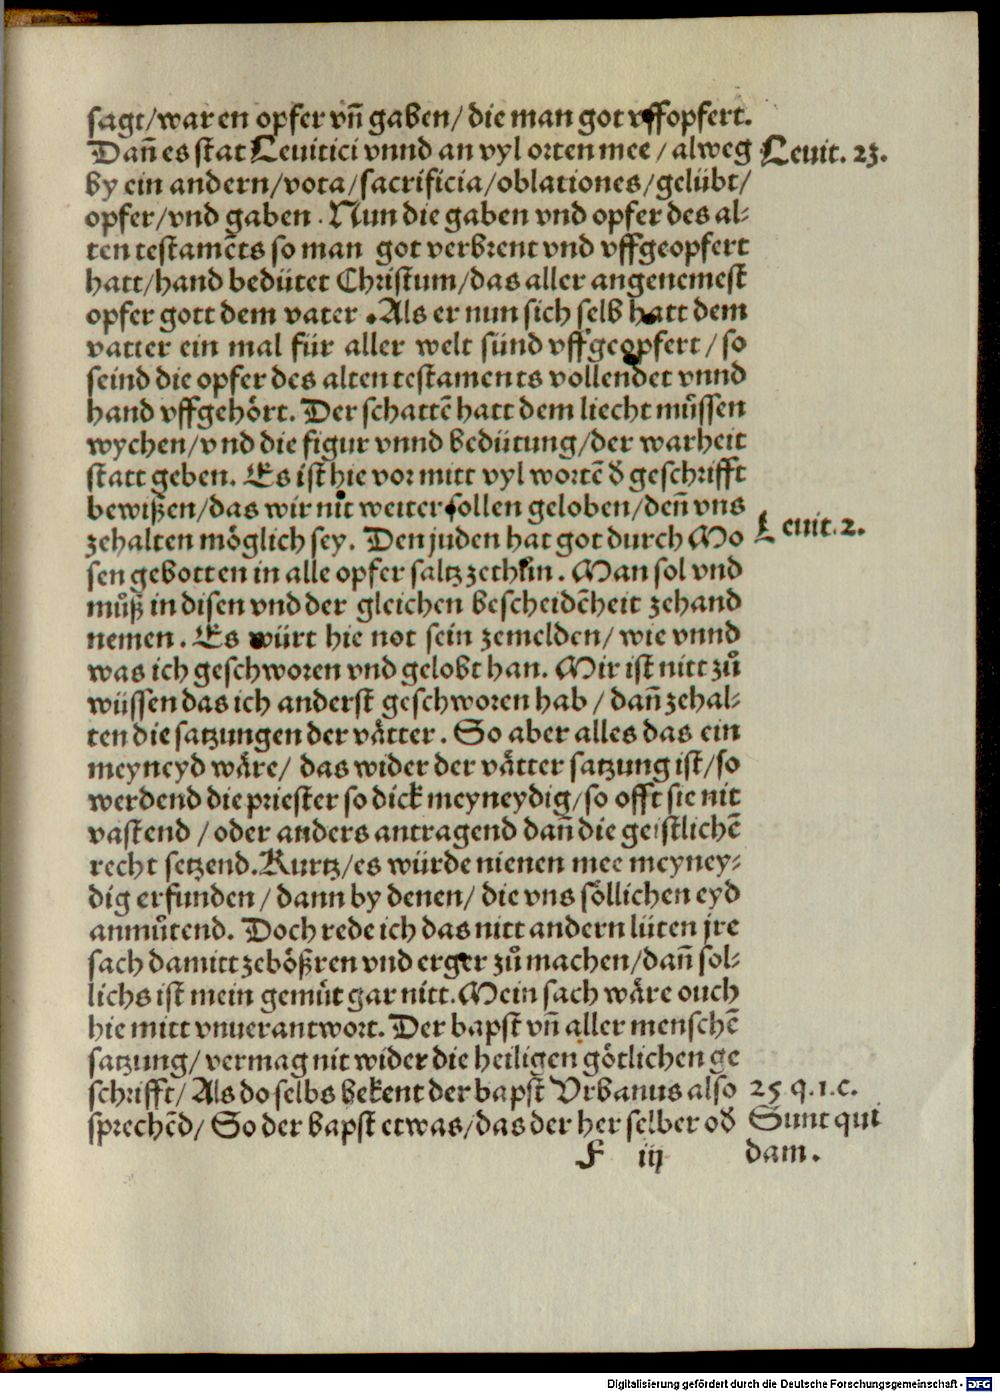 sagt/waren opfer vñ gaben/ die man got vffopfert.
Dañ es stat Leuitici vnnd an vyl orten mee / alweg
Leuit. 23.
by ein andern/vota/sacrificia/oblationes/gelübt/
opfer/vnd gaben . Nun die gaben vnd opfer des al⸗
ten testamẽts so man got verbrent vnd vffgeopfert
hatt/hand bedütet Christum/das aller angenemest
opfer gott dem vater . Als er nun sich selb hatt dem
vatter ein mal für aller welt sünd vffgeopfert / so
seind die opfer des alten testaments vollendet vnnd
hand vffgehört. Der schattẽ hatt dem liecht müssen
wychen/vnd die figur vnnd bedütung/der warheit
statt geben. Es ist hie vor mitt vyl wortẽ d̕ geschrifft
bewißen/das wir nit weiter sollen geloben/deñ vns
zehalten möglich sey. Den juden hat got durch Mo
Leuit. 2.
sen gebotten in alle opfer saltz zethůn. Man sol vnd
můß in disen vnd der gleichen bescheidẽheit zehand
nemen. Es würt hie not sein zemelden/ wie vnnd
was ich geschworen vnd gelobt han. Mir ist nitt zů
wüssen das ich anderst geschworen hab / dañ zehal⸗
ten die satzungen der vätter. So aber alles das ein
meyneyd wäre/ das wider der vätter satzung ist/so
werdend die priester so dick meyneydig/so offt sie nit
vastend / oder anders antragend dañ die geistlichẽ
recht setzend. Kurtz/es würde nienen mee meyney⸗
dig erfunden / dann by denen/ die vns söllichen eyd
anmůtend. Doch rede ich das nitt andern lüten jre
sach damitt zebößren vnd erger zů machen/dañ sol⸗
lichs ist mein gemüt gar nitt. Mein sach wäre ouch
hie mitt vnuerantwort. Der bapst vñ aller menschẽ
satzung/ vermag nit wider die heiligen götlichen ge
schrifft/ Als do selbs bekent der bapst Vrbanus also
25 q.1.c.
sprechẽd/ So der bapst etwas/das der her selber od̕
Sunt qui
F iij
dam.
Digitalisierung gefördert durch die Deutsche Forschungsgemeinschaft - DFG